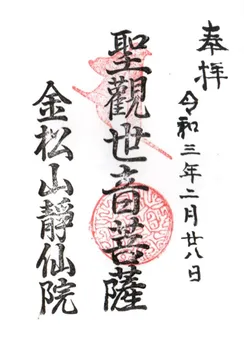 奉拝
令和三年二月廿八日
聖觀世音菩薩
金松山靜仙院